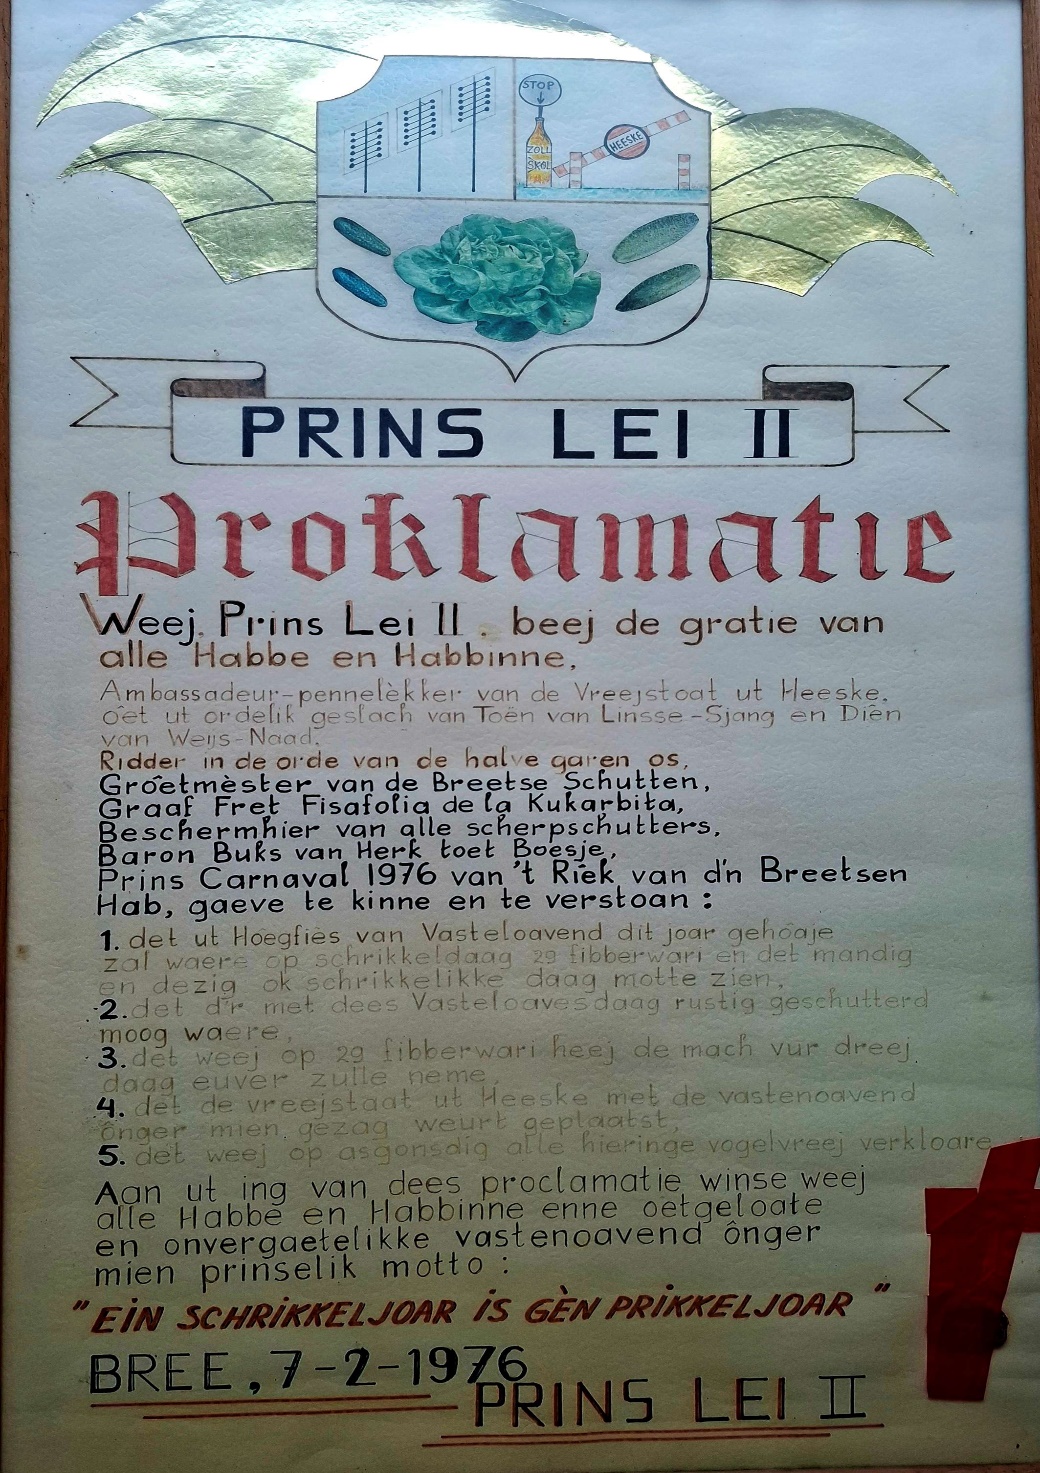 STOP
ZOLL
SKOL
HEESKE
PRINS LEI II
Proklamatie
Weej. Prins Lei II. beej de gratie van
alle Habbe en Habbinne,
Ambassadeur-pennelèkker van de Vreejstoat ut Heeske,
oêt ut ordelik geslach van Toën van Linsse-Sjang en Diên
van Weijs-Naad,
Ridder in de orde van de halve garen os,
Groêtmèster van de Breetse Schutten,
Graaf Fret Fisafolia de la Kukarbita,
Beschermhier van alle scherpschutters,
Baron Buks van Herk toet Boesje,
Prins Carnaval 1976 van 't Riêk van d'n Breetsen
Hab, gaeve te kinne en te verstoan :
1. det ut Hoegfies van Vasteloavend dit joar gehôaje
zal waere op schrikkeldaag 29 fibberwari en det mandig
en dezig ok schrikkelikke daag motte zien,
2. det d'r met dees Vasteloavesdaag rustig geschutterd
moog waere,
3. det weej op 29 fibberwari heej de mach vur dreej
daag euver zulle neme,
4. det de vreejstaat ut Heeske met de vastenoavend
ônger mien gezag weurt geplaatst,
5. det weej op asgonsdig alle hieringe vogelvreej verkloare.
Aan ut ing van dees proclamatie winse weej
alle Habbe en Habbinne enne oetgeloate
en onvergaetelikke vastenoavend ônger
mien prinselik motto :
"EIN SCHRIKKELJOAR IS GÈN PRIKKELJOAR"
BREE, 7-2-1976
PRINS LEI II